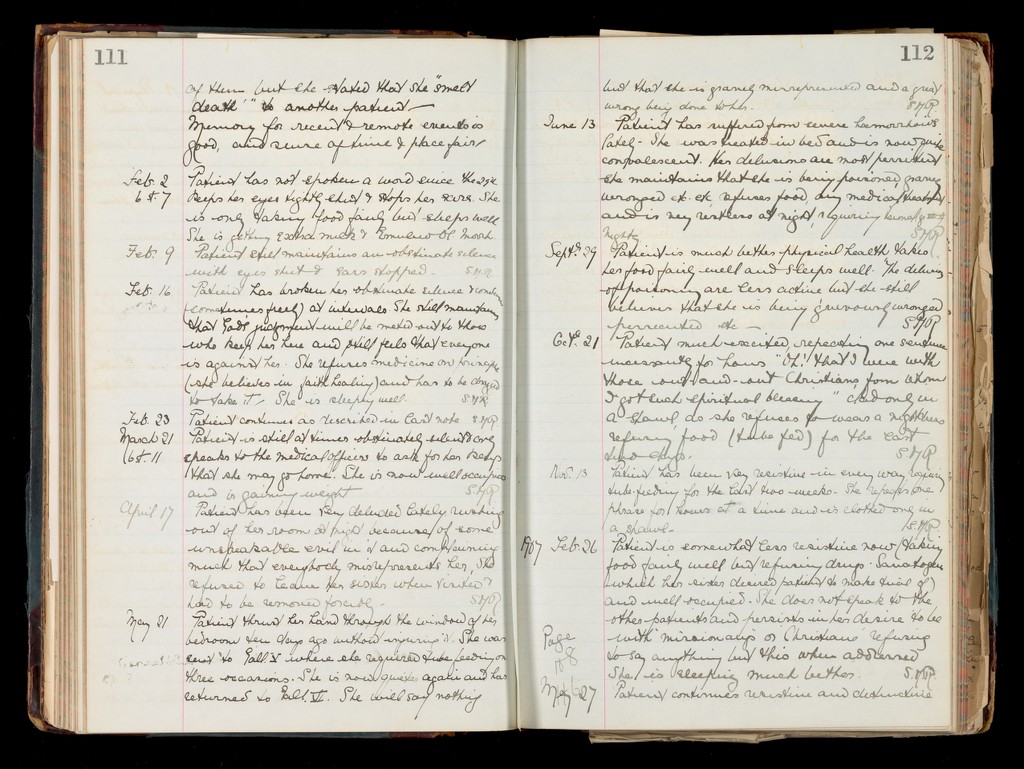 111
of them but she stated that she "smelt
death" to another patient —
Memory for recent & remote events is
good, and sense of time & place fair
Feb. 2 Patient has not spoken a word since the 29th
6 st. 7 Keeps her eyes tightly shut & stops her ears. She
is only taking food fairly but sleeps well.
She is getting Extra milk & Emulsio Ol. Morrh.
Feb. 9 Patient still maintains an obstinate silence
with eyes shut & ears stopped. S.M.R
Feb. 16 Patient has broken her obstinate silence &
(sometimes freely) at intervals. She still maintains
that God's judgment will be meted out to those
who keep her here and still feels that everyone
is against her. She refuses medicine on principle
(she believes in faith healing) and has to be
to take it. She is sleeping well. S.M.R
Feb. 23 Patient continues as described in last note S.M.R
March 21 Patient is still at times obstinately silent & only
6 st. 11 speaks to the medical officers to ask for her keys
that she may go home. She is now well occupied
and is gaining weight S.M.R
April 17 Patient has been very deluded lately rushing
out of her room at night because of some
unspeakable evil in it and complaining
much that everybody misrepresents her. She
refused to leave her sister when visited &
had to be removed forcibly. S.M.R
May 21 Patient thrust her hand through the window of her
bedroom ten days ago without injuring it. She was
sent to Gall. V where she required tube feeding on
three occasions. She is now quieter again and has
returned to Gall. VI. She will say nothing
112
but that she is gravely misrepresented and a great
wrong being done to her. S.M.R
June 13 Patient has suffered from severe haemorrhoids
lately. She was treated in bed and is now quite
convalescent. Her delusions are most persistent
she maintains that she is being poisoned,
wronged etc. etc. refuses food, any medical treatment
and is very restless at night, requiring
nightly S.M.R
Septr. 29 Patient is much better physical health takes
her food fairly well and sleeps well. The delusions
of poisoning are less active but she still
believes that she is being grievously wronged
persecuted etc — S.M.R
Octr. 21 Patient much excited, repeating one sentence
incessantly for hours "Oh! that I were with
those out-and-out Christians from whom
I got such spiritual blessing" clad only in
a shawl as she refuses to wear a nightdress
refusing food (tube fed) for the last
two days. S.M.R
Nov. 13 Patient has been very resistive in every way, requiring
tube-feeding for the last two weeks. She repeats one
phrase for hours at a time and is clothed only in
a shawl. S.M.R
1907 Feb. 26 Patient is somewhat less resistive now, taking
food fairly well but refusing drugs. Sanatogen
which her sister desired patient to make trial of
and well occupied. She does not speak to the
other patients and persists in her desire to be
with missionarys or Christians refusing
Page
to say anything but this when addressed
She is sleeping much better. S.M.R
May 27 Patient continues resistive and destructive